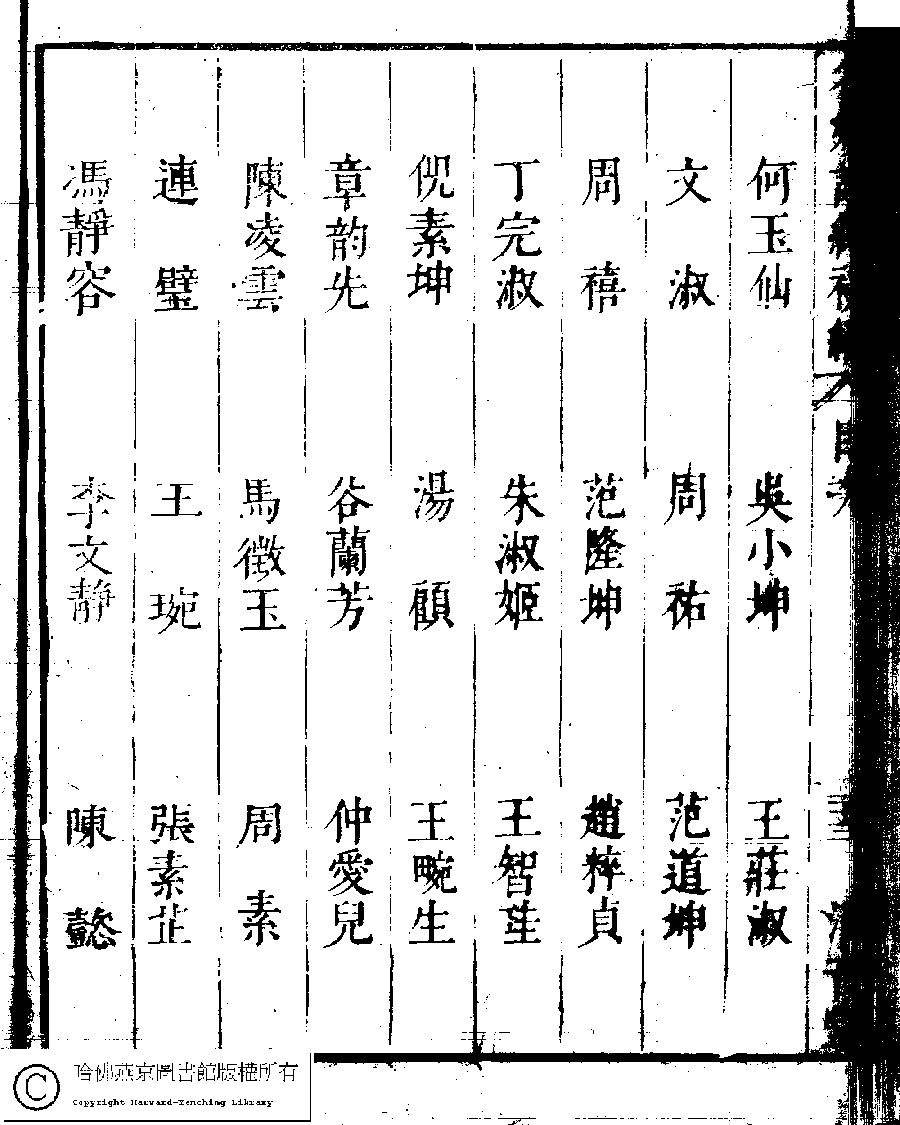 何玉仙 吳小坤 王莊淑
文淑 周祐 范道坤
周禧 范隆坤 趙粹貞
丁完淑 朱淑姬 王智莊
倪素坤 湯顧 王畹生
章韵先 谷蘭芳 仲愛兒
陳凌雲 馬徵玉 周素
連璧 王琬 張素芷
馮靜容 李文靜 陳懿
哈佛燕京圖書館版權所有
Copyright Harvard-Yenching Library